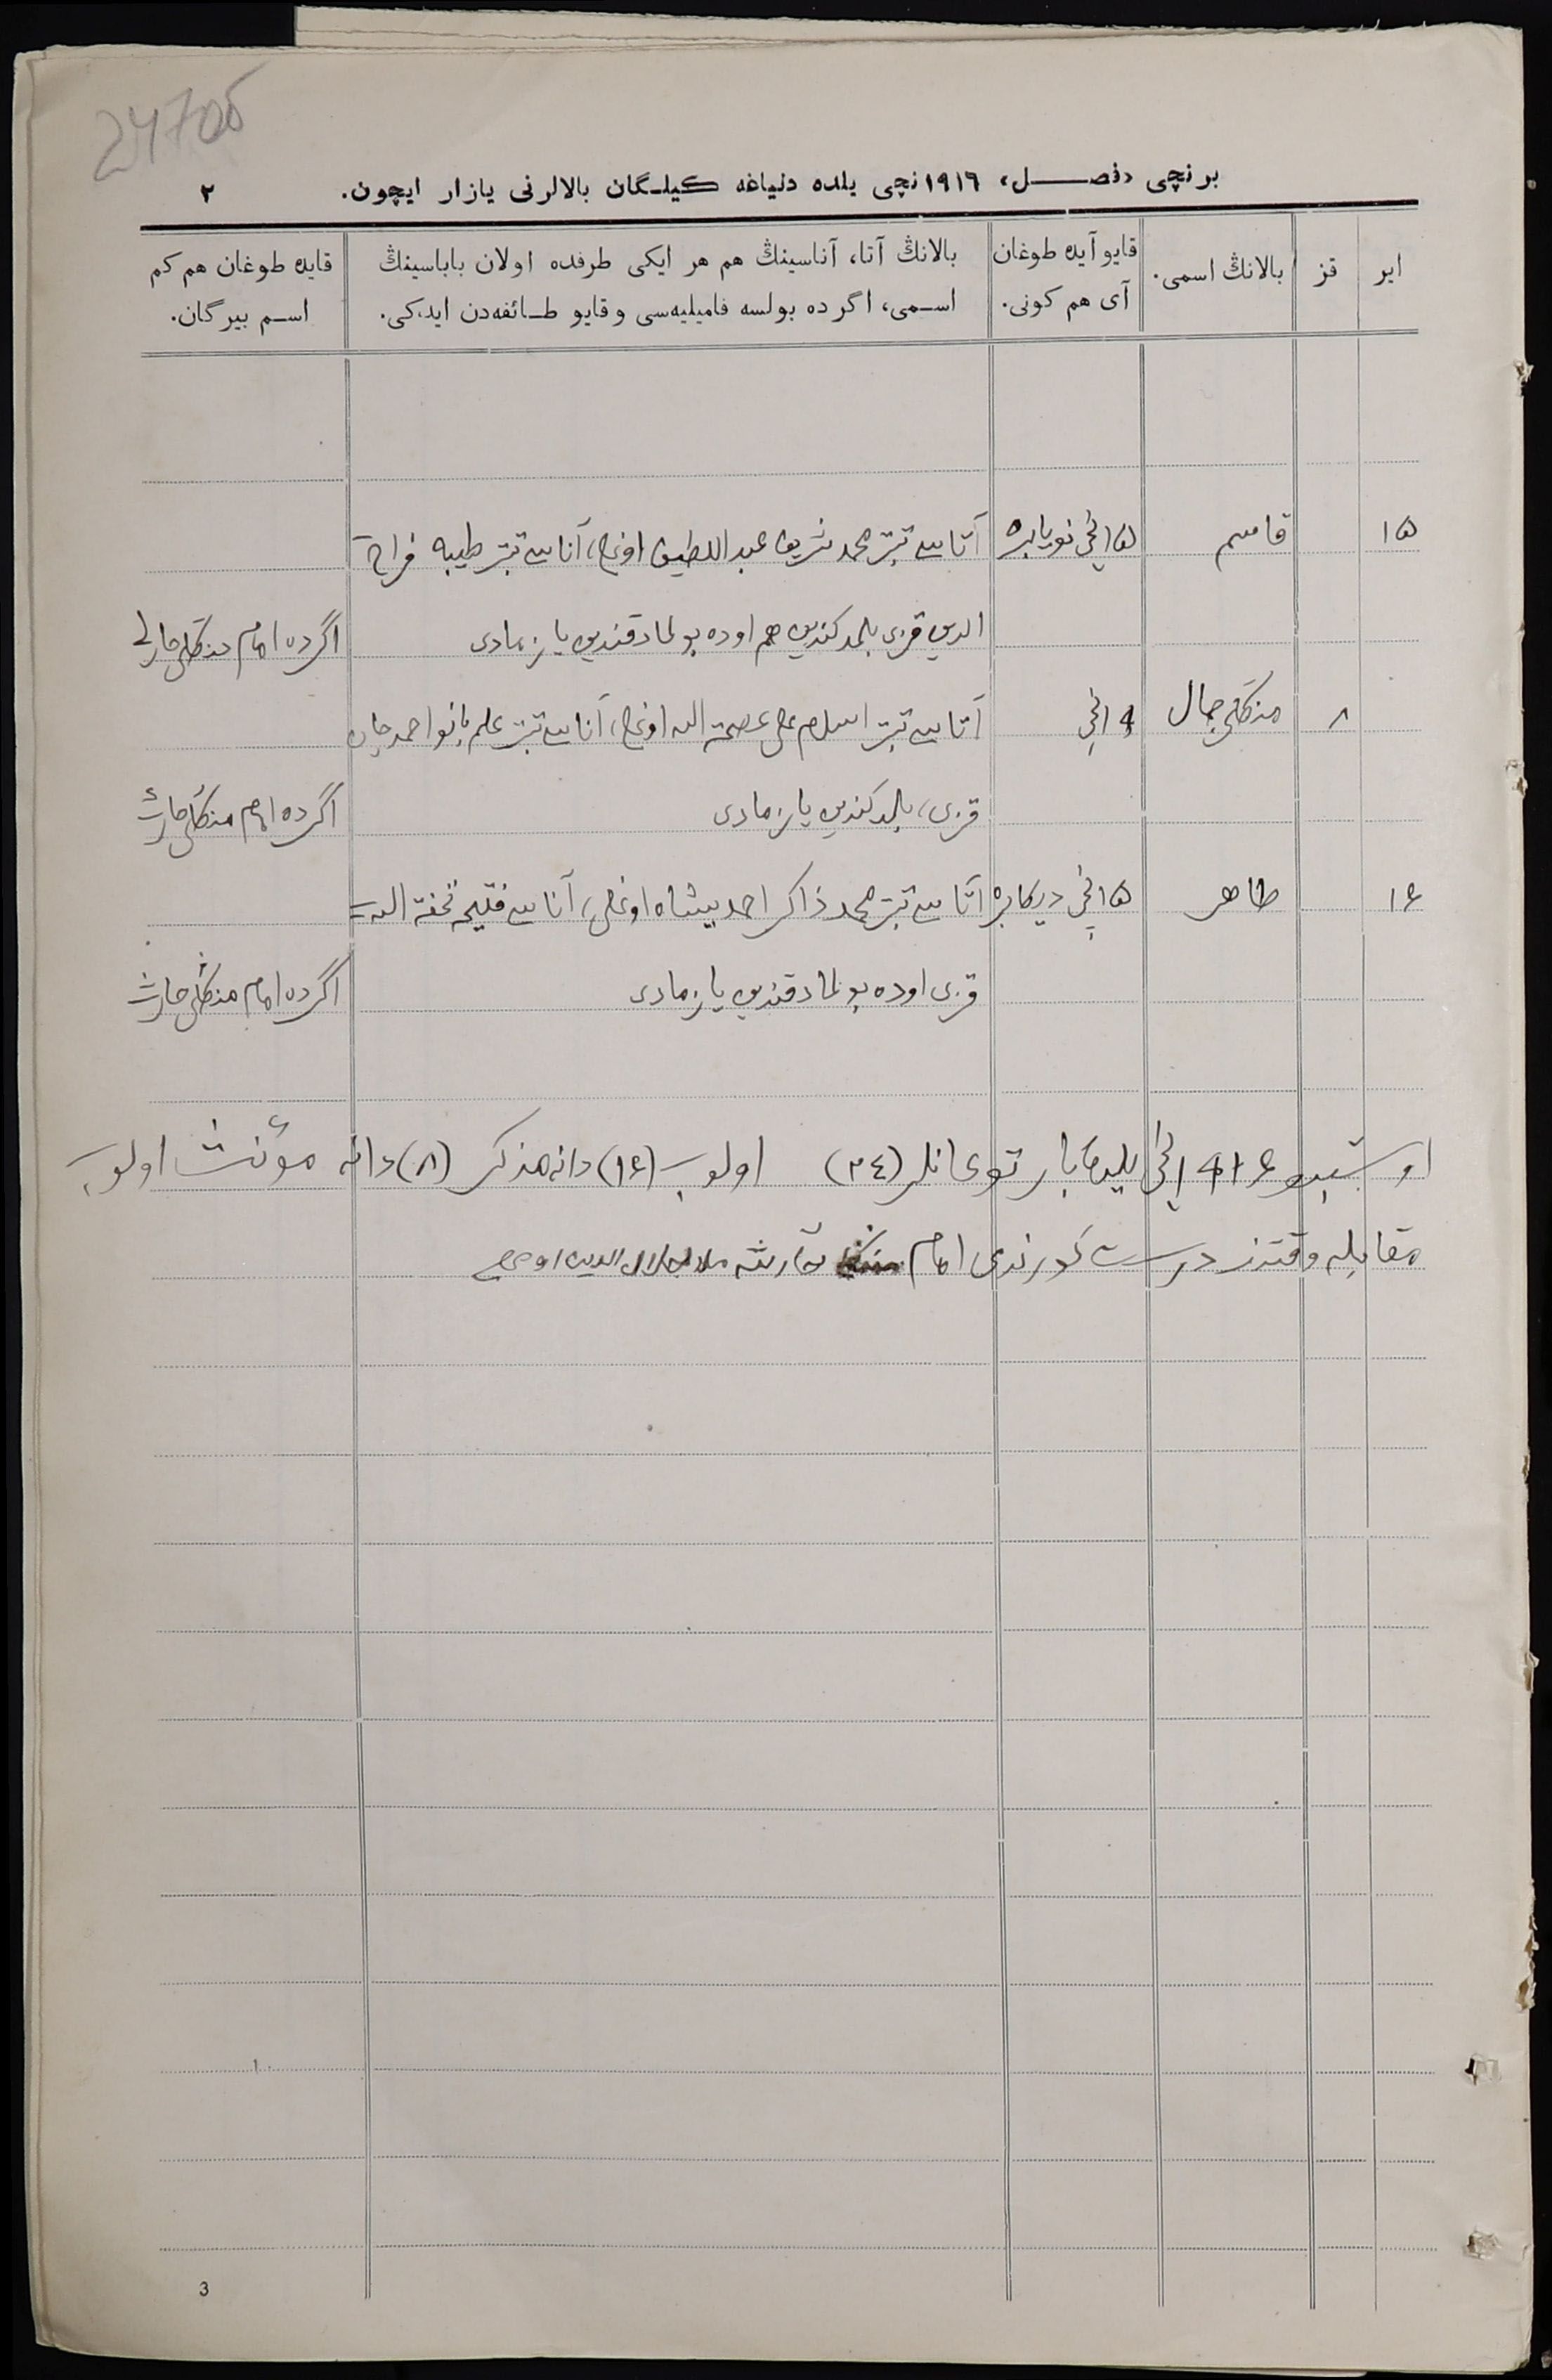 24705
برنچی «فصـــل» ۱۹۱۶نچی یلده دنیاغه کیلـگان بالالرنی یازار ایچون. ۲
ایر
قز
بالانڭ اسمی.
قایو آیده طوغان
آی هم کونی.
بالانڭ آتا، آناسینڭ هم هر ایکی طرفده اولان باباسینڭ
اسـمی، اگر ده بولسه فامیلیه‌سی و قایو طـائفه‌دن ایدکی.
قایده طوغان هم کم
اسـم بیرگان.
۱۵ قاسم ۱۵نچی نویابره آتاسی تبتر محمد شریف عبد اللطیف اوغلی، آناسی تبتر طیبه
الدین قزی بلمدکندین هم اوده بولمادقندین یازمادی اگرده امام
۸ منکلی جمال ۹ نچی آتاسی تبتر اسلام علی عصمة الله اوغلی، آناسی تبتر علم بانو احمدجان
قزی، بلمدکندین یازمادی اگرده امام
۱۶ طاهر ۱۵نچی دیکابره آتاسی تبتر محمد ذاکر احمد بیشاه اوغلی، آناسی تحفة الله
قزی اوده بولمادقندین یازمادی اگرده امام
اوشبو ۹۱۶ نچی یلده بار توغانلر (۲٤) اولوب (۱۶) دانه مذکر (۸) دانه مؤنث اولوب
مقابله وقتنده درست کورندی امام ملا جلال الدین اوغلی
3